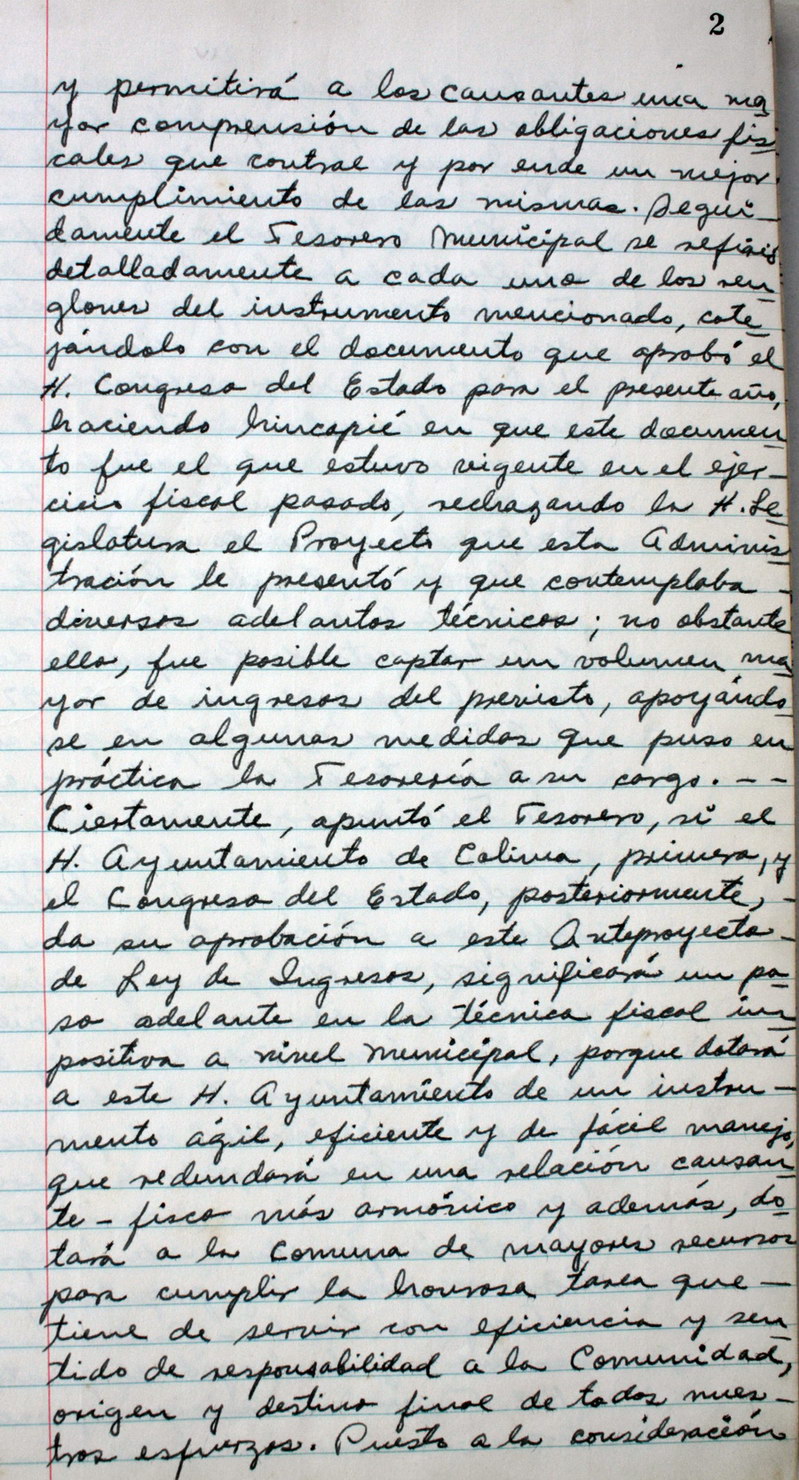 2
y permitirá a los causantes una ma
yor comprensión de las obligaciones fis
cales que contrae y por ende un mejor
cumplimiento de las mismas. Segui-
damente el Tesorero Municipal se refirió
detalladamente a cada uno de los ren
glones del instrumento mencionado, cote
jándolo con el documento que aprobó el
H. Congreso del Estado para el presente año,
haciendo hincapié en que este documen
to fue el que estuvo vigente en el ejer-
cicio fiscal pasado, rechazando la H. Le
gislatura el Proyecto que esta Adminis
tración le presentó y que contemplaba -
diversos adelantos técnicos; no obstante
ello, fue posible captar un volumen ma
yor de ingresos del previsto, apoyándo
se en algunas medidas que puso en
práctica la Tesorería a su cargo. - -
Ciertamente, apuntó el Tesorero, si el
H. Ayuntamiento de Colima, primero, y
el Congreso del Estado, posteriormente, -
da su aprobación a este Anteproyecto -
de Ley de Ingresos, significará un pa
so adelante en la técnica fiscal im
positiva a nivel Municipal, porque dotará
a este H. Ayuntamiento de un instru-
mento ágil, eficiente y de fácil manejo,
que redundará en una relación causan
te - fisco más armónico y además, do
tará a la Comuna de mayores recursos
para cumplir la honrosa tarea que -
tiene de servir con eficiencia y sen
tido de responsabilidad a la Comunidad,
origen y destino final de todos nues-
tros esfuerzos. Puesto a la consideración